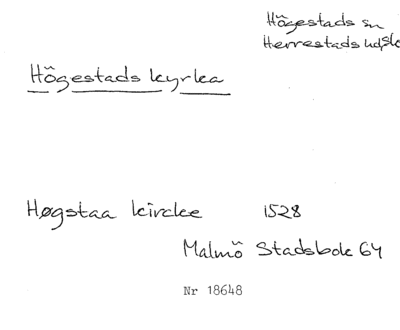 Högestads sn
Herrestads hd, sk
Högestads kyrka
Høgstaa kircke 1528
Malmö Stadsbok 64
Nr 18648